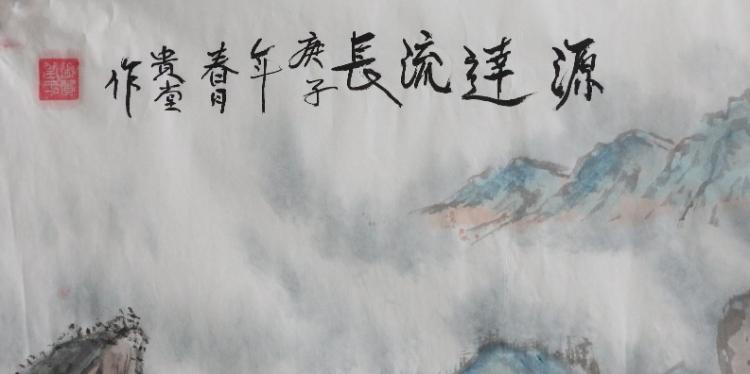 源遠流長
庚子
年
春月
貴堂
作